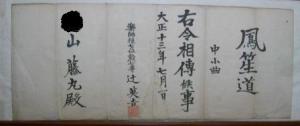 鳳笙道
中小曲
右令相傳候事
大正十三年七月一日
辻英吉
山藤丸殿